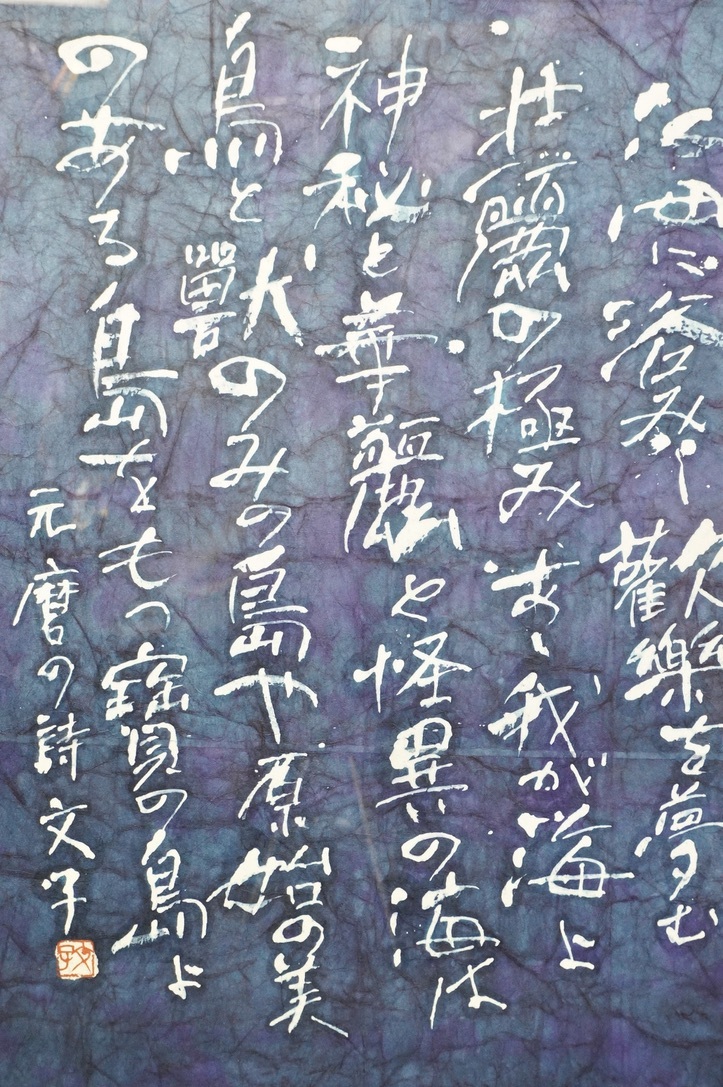 海に浴み 歡樂を夢む
壮麗の極みまゝ我が海よ
神秘と華麗と怪異の海は
鳥と獸のみの島や原始の美
のある島をもつ寳の島よ
元麿の詩 文子